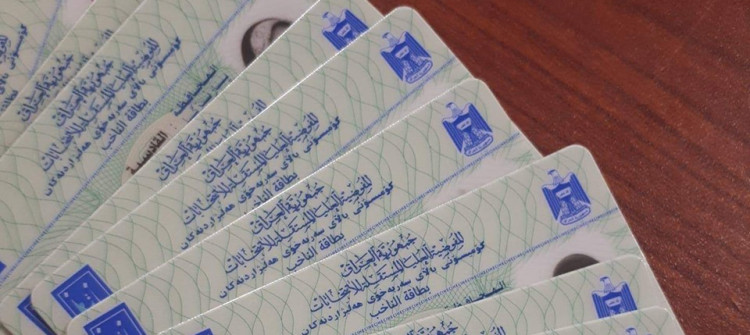 جمهورية العراق
المفوضية العليا المستقلة للانتخابات
كۆمسيۆنى بالاى سەربەخۆى هەلبژاردنەكان
بطاقة الناخب
القادسية
جمهورية العراق
المفوضية العليا المستقلة للانتخابات
كۆمسيۆنى بالاى سەربەخۆى هەلبژاردنەكان
بطاقة الناخب
جمهورية العراق
المفوضية العليا المستقلة للانتخابات
كۆمسيۆنى بالاى سەربەخۆى هەلبژاردنەكان
بطاقة الناخب
جمهورية العراق
المفوضية العليا المستقلة للانتخابات
كۆمسيۆنى بالاى سەربەخۆى هەلبژاردنەكان
بطاقة الناخب